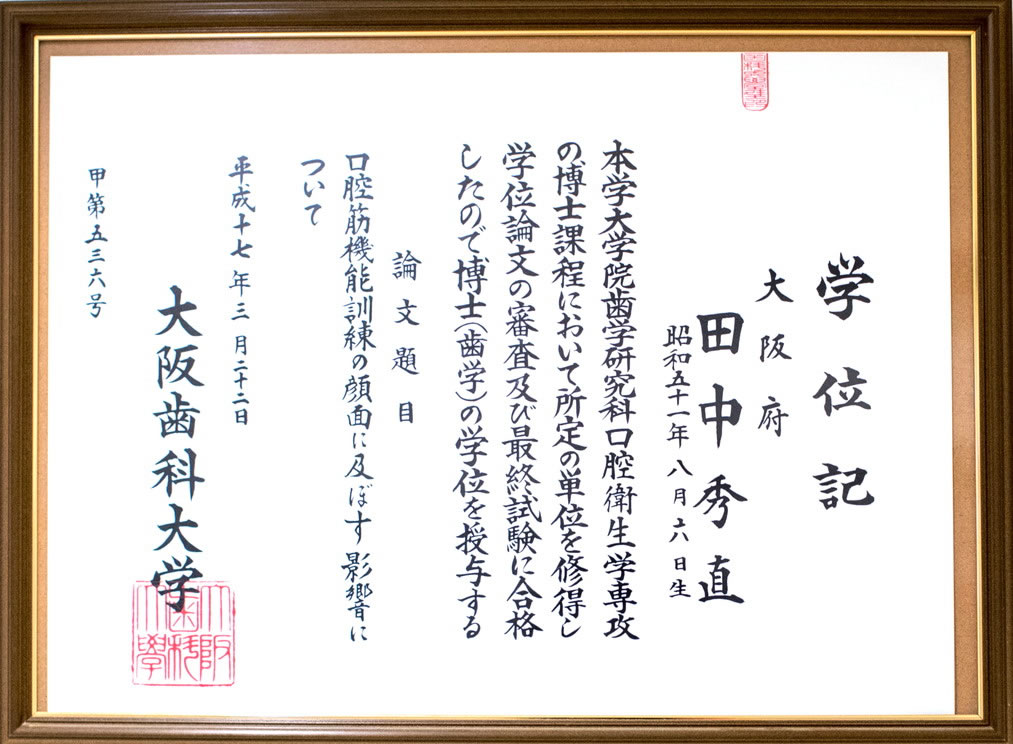 学位記
大阪府
田中秀直
昭和五十一年八月六日生
本学大学院歯学研究科口腔衛生学専攻
の博士課程において所定の単位を修得し
学位論文の審査及び最終試験に合格
したので博士(歯学)の学位を授与する
論文題目
口腔筋機能訓練の顔面に及ぼす影響に
ついて
平成十七年三月二十二日
大阪歯科大学
大阪
歯科
大學
甲第五三六号